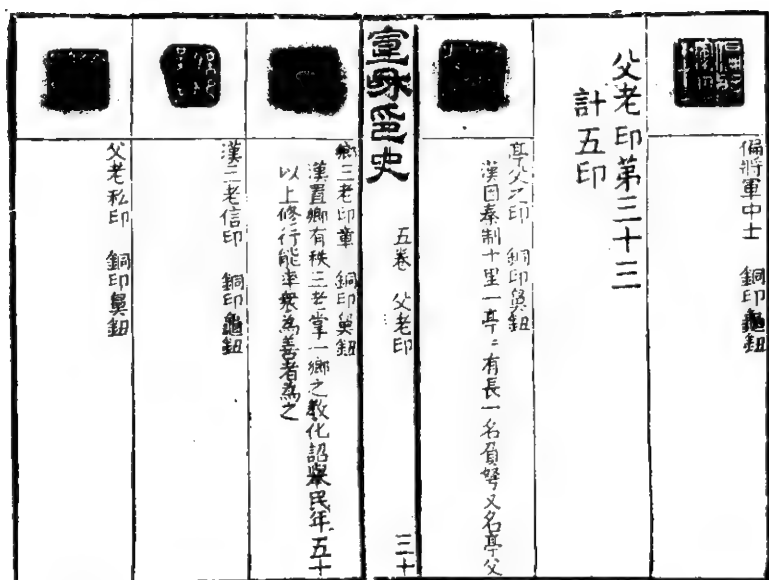 偏將軍中士　銅印龜鈕
父老印第三十三
計五印
亭父之印　銅印鼻鈕
漢因秦制十里一亭〻有長一名負弩又名亭父
宣和印史
五卷　父老印
三十
鄉三老印章　銅印鼻鈕
漢置鄉有秩三老掌一鄉之教化詔舉民年五十
以上修行能率衆為善者為之
漢三老信印　銅印龜鈕
父老私印　銅印鼻鈕